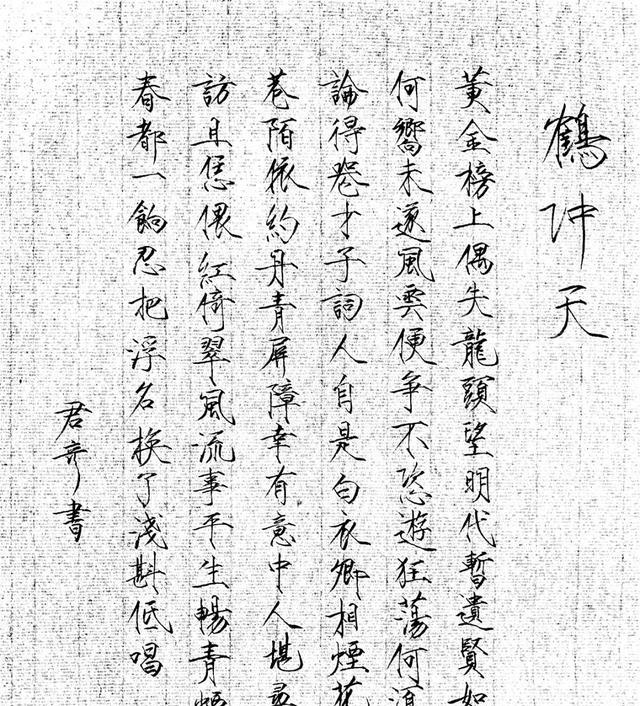 鶴冲天
黃金榜上偶失龍頭望明代暫遺賢如
何嚮未遂風雲便爭不恣遊狂蕩何須
論得喪才子詞人自是白衣卿相煙花
巷陌依約丹青屏障幸有意中人堪尋
訪且恁偎紅倚翠風流事平生暢青
春都一餉忍把浮名換了淺斟低唱
君書